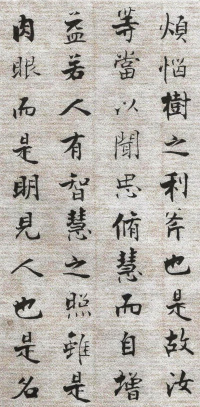 煩惱樹之利斧也是故汝
等當以聞思脩慧而自增
益若人有智慧之照雖是
肉眼而是明見人也是名